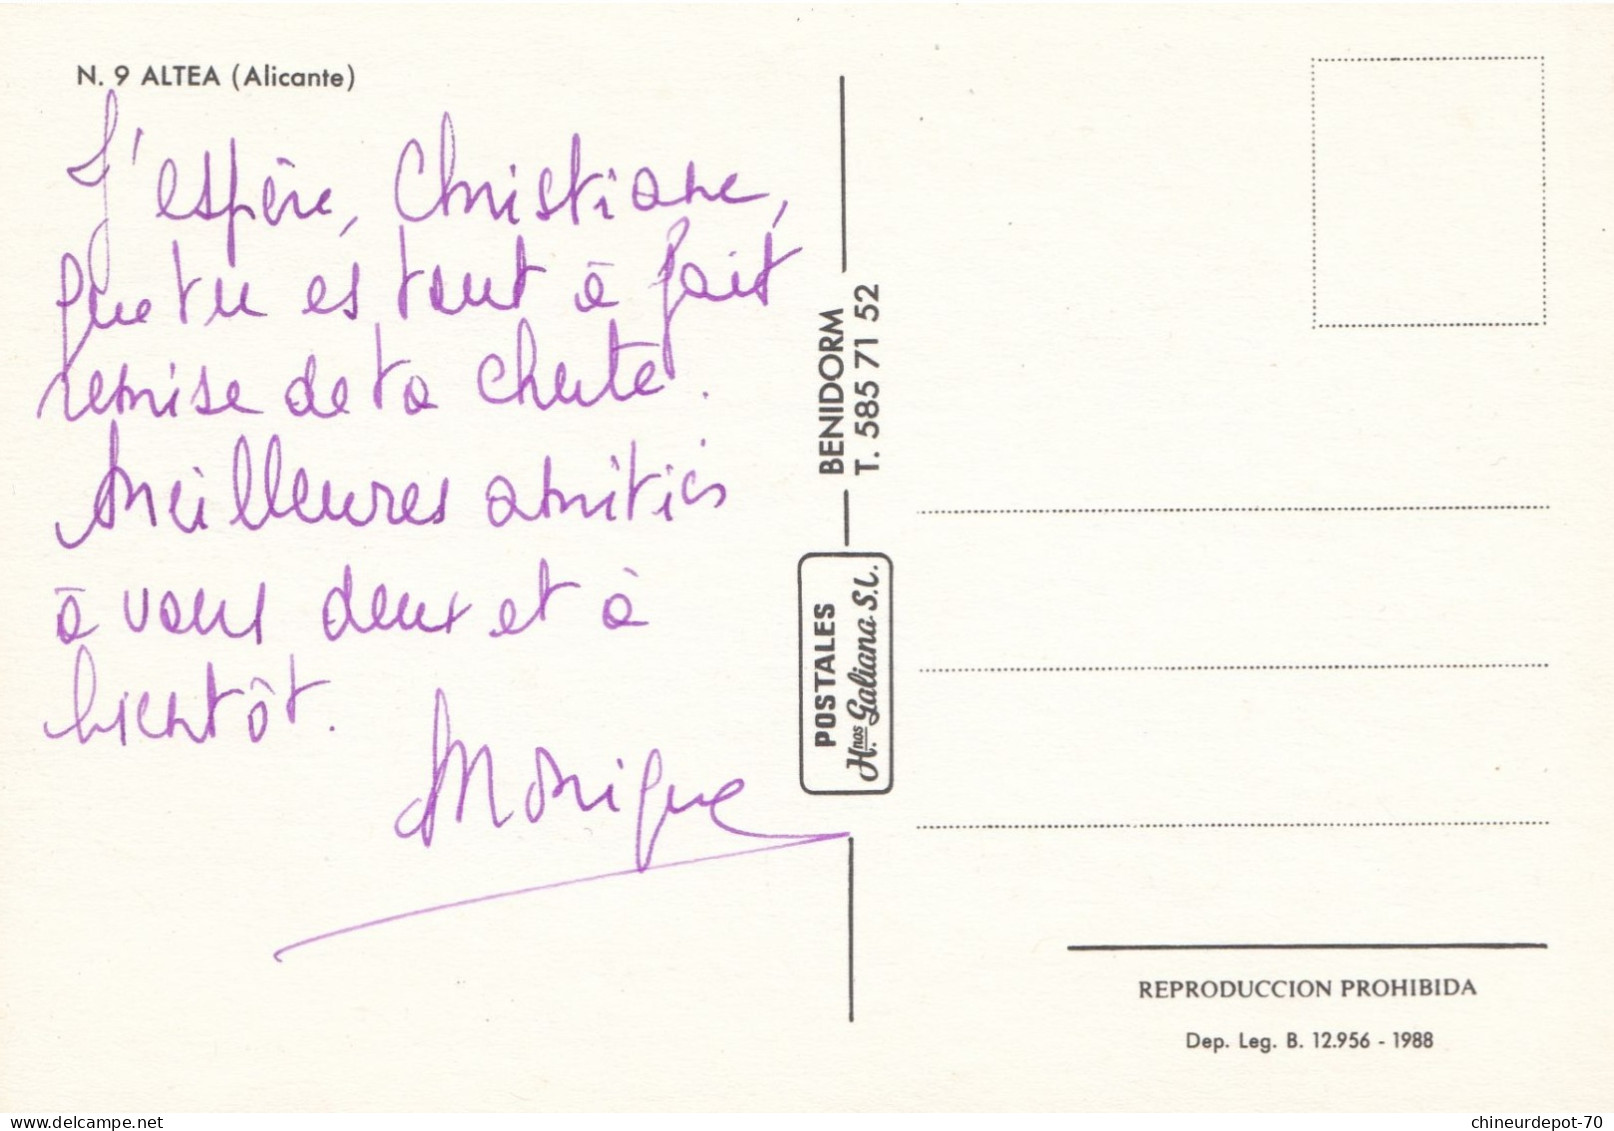 N. 9 ALTEA (Alicante)
J'espère, Christiane,
que tu es tout à fait
remise de ta chute.
Meilleures amitiés
à vous deux et à
bientôt.
Monique
BENIDORM
T. 585 71 52
POSTALES
H.nos Galiana S.L.
REPRODUCCION PROHIBIDA
Dep. Leg. B. 12.956 - 1988
chineurdepot-70